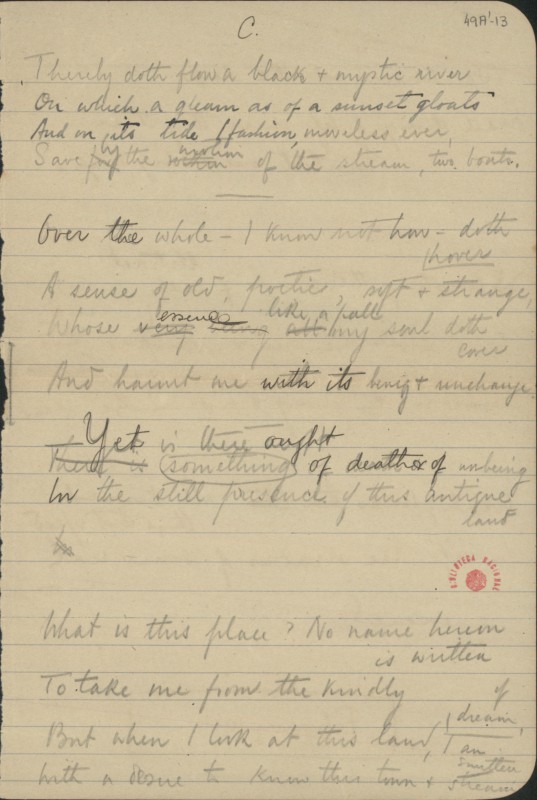 C.
49A¹-13
Thereby doth flow a black & mystic river
On which a gleam as of a sunset gloats
And on its tide / fashion, moveless ever,
by motion
Save for the of the stream, two boats.
Over the whole – I know not how – doth
hover
A sense of old, poetic, soft & strange,
essence like a pall
Whose very being all my soul doth
cover
And haunt me with its being & unchange.
Yet is there aught
There is something of death or of unbeing
In the still presence of this antique
land
In
BIBLIOTECA NACIONAL
What is this place? No name hereon
is written
To take me from the kindly of
dream,
But when I look at this land, I am
smitten
With a desire to know this town & stream